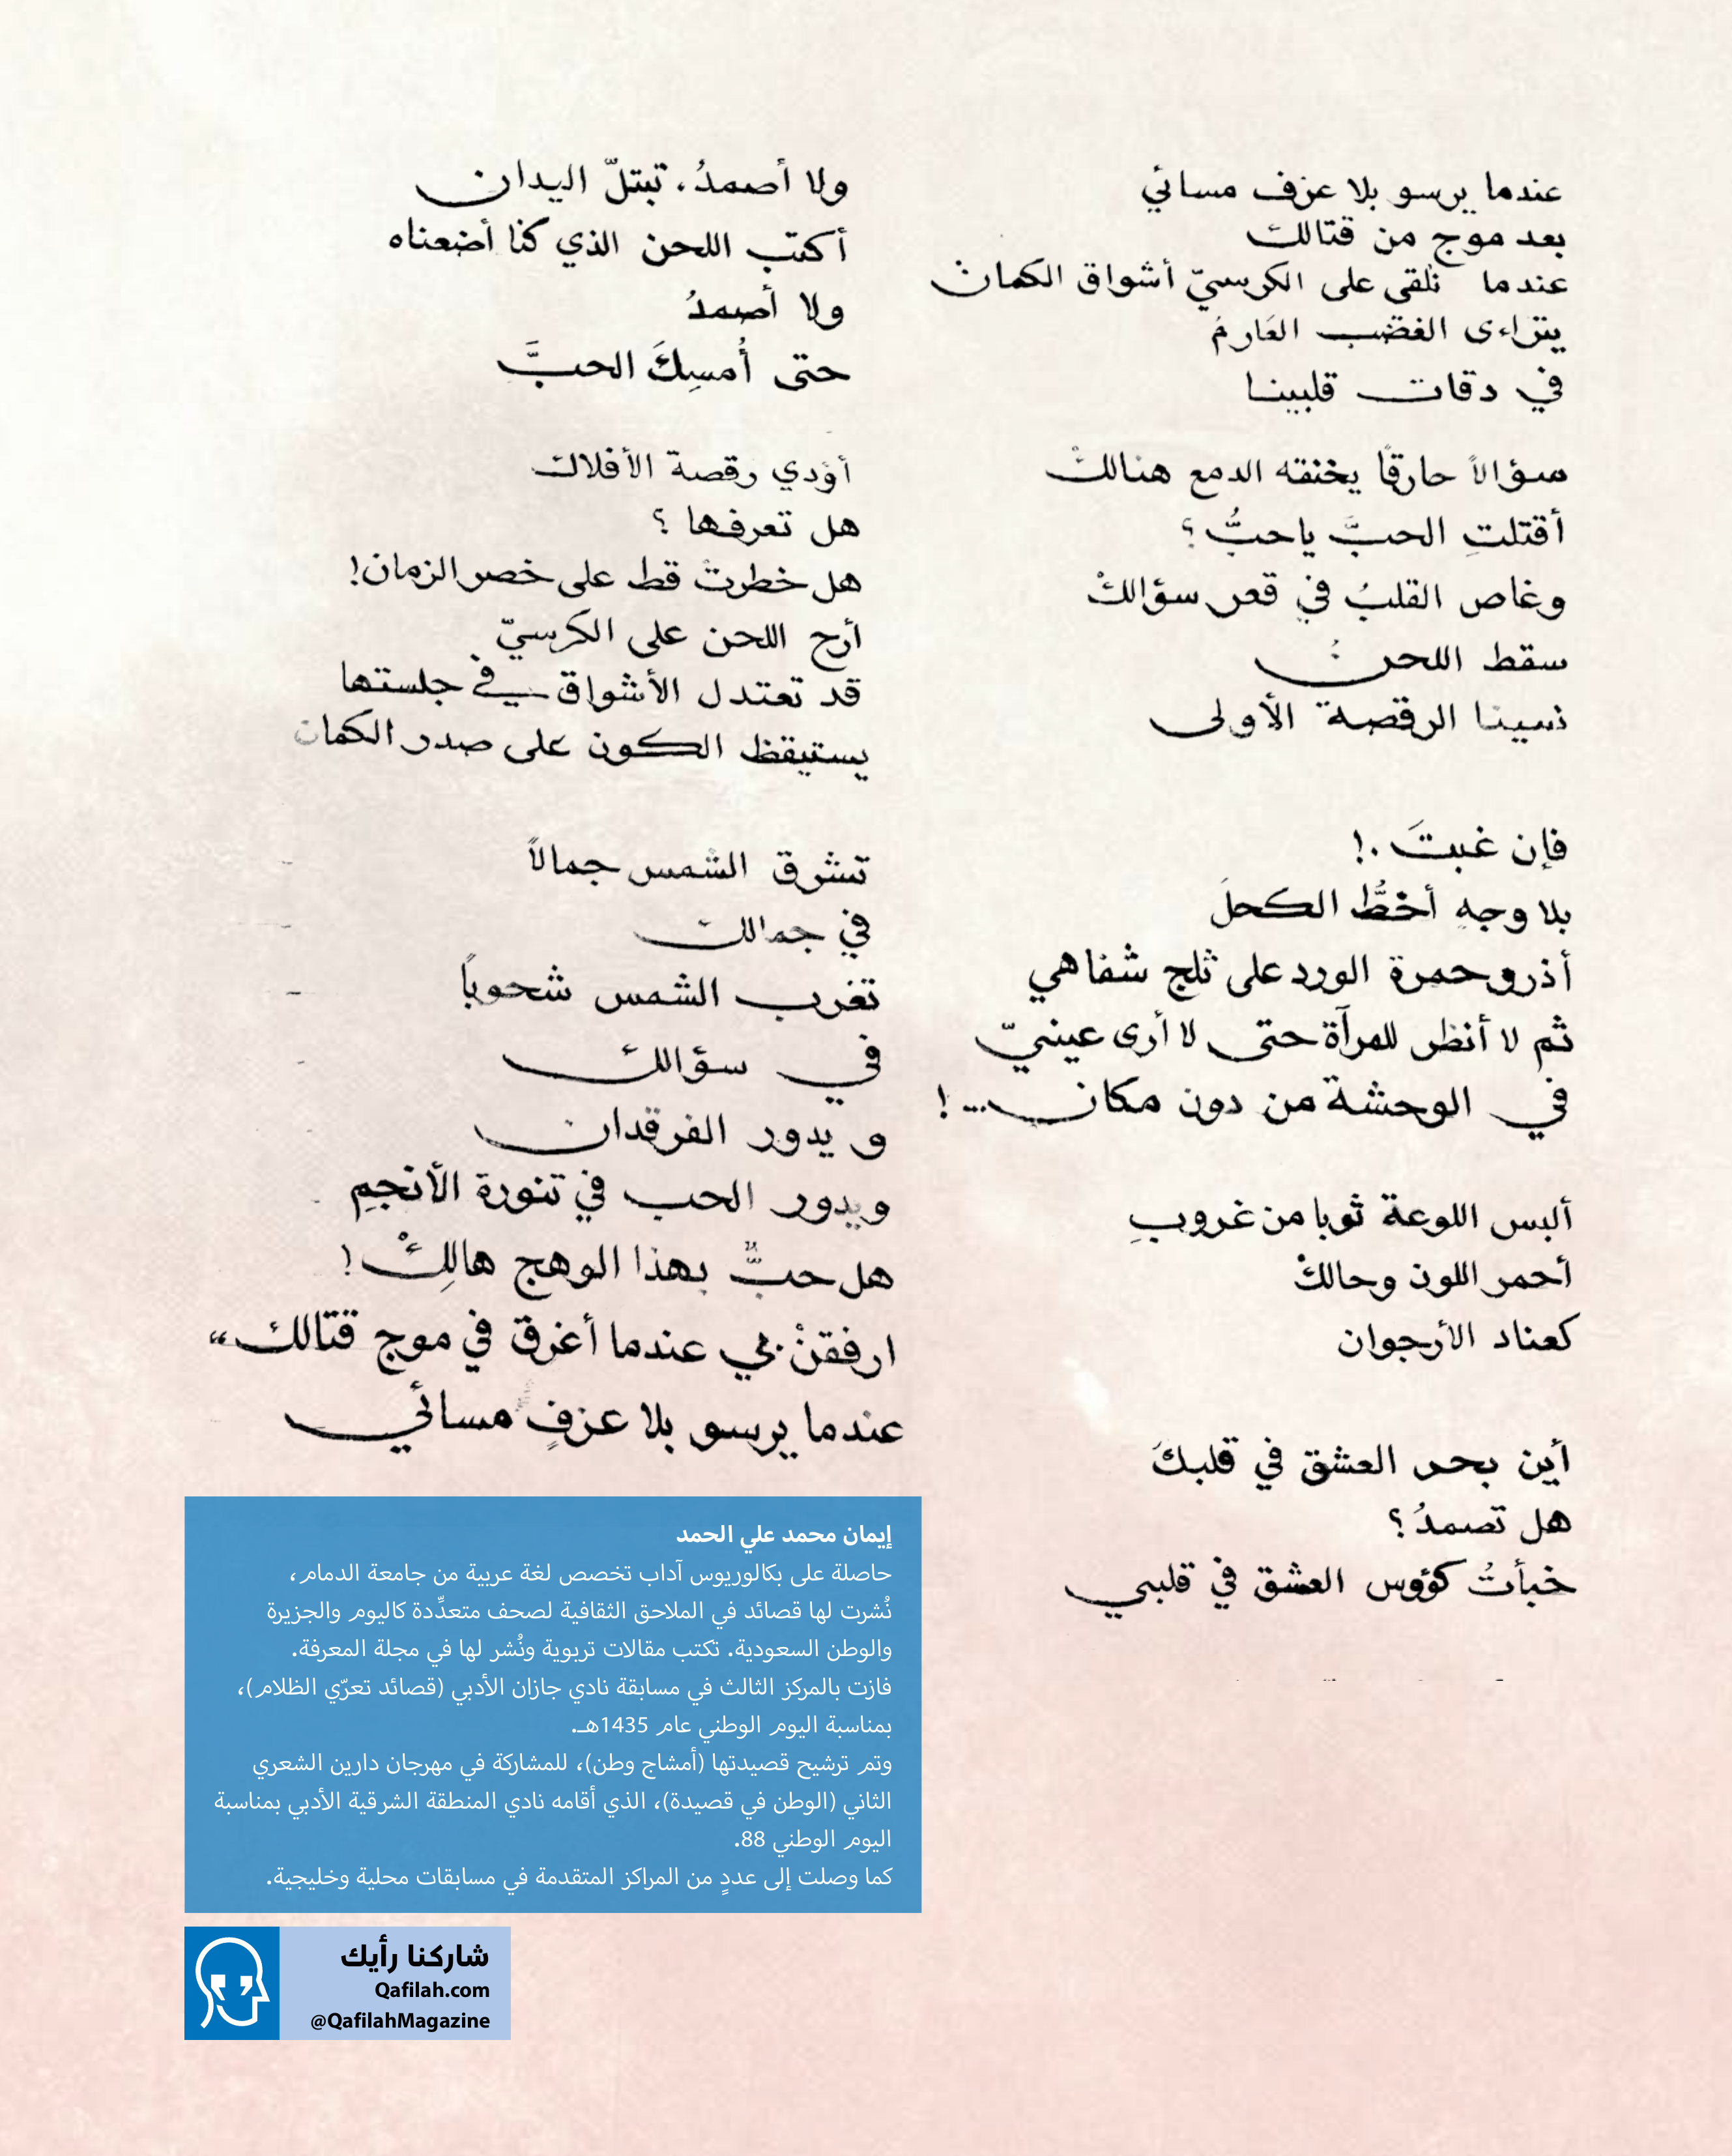 عندما يرسو بلا عزف مسائي
بعد موج من قتالك
عندما نلقي على الكرسيّ أشواق الكمان
يتراءى الغضب العَارمُ
في دقات قلبينا
سؤالاً حارقًا يخنقه الدمع هنالكْ
أقتلتِ الحبَّ ياحبُّ ؟
وغاص القلبُ في قعر سؤالكْ
سقط اللحن
نسينا الرقصة الأولى
فإن غبتَ .!
بلا وجهِ أخطُّ الكحلَ
أذرو حمرة الورد على ثلج شفاهي
ثم لا أنظر للمرآة حتى لا أرى عينيّ
في الوحشة من دون مكان ...!
ألبس اللوعة ثوبا من غروبِ
أحمر اللون وحالكْ
كعناد الأرجوان
أين بحر العشق في قلبكَ
هل تصمدُ ؟
خبأتُ كؤوس العشق في قلبي
ولا أصمدُ، تبتلّ اليدان
أكتب اللحن الذي كنا أضعناه
ولا أصمدُ
حتى أُمسِكَ الحبَّ
أؤدي رقصة الأفلاك
هل تعرفها ؟
هل خطرتْ قط على خصر الزمان!
أرح اللحن على الكرسيّ
قد تعتدل الأشواق في جلستها
يستيقظ الكون على صدر الكمان
تشرق الشمس جمالاً
في جمالك
تغرب الشمس شحوبًا
في سؤالك
و يدور الفرقدان
ويدور الحب في تنورة الأنجمِ
هل حبٌّ بهذا الوهج هالِكْ !
ارفقنْ بي عندما أغرق في موج قتالك،،
عندما يرسو بلا عزفٍ مسائي
إيمان محمد علي الحمد
حاصلة على بكالوريوس آداب تخصص لغة عربية من جامعة الدمام،
نُشرت لها قصائد في الملاحق الثقافية لصحف متعدِّدة كاليوم والجزيرة
والوطن السعودية. تكتب مقالات تربوية ونُشر لها في مجلة المعرفة.
فازت بالمركز الثالث في مسابقة نادي جازان الأدبي (قصائد تعرّي الظلام)،
بمناسبة اليوم الوطني عام 1435هـ.
وتم ترشيح قصيدتها (أمشاج وطن)، للمشاركة في مهرجان دارين الشعري
الثاني (الوطن في قصيدة)، الذي أقامه نادي المنطقة الشرقية الأدبي بمناسبة
اليوم الوطني 88.
كما وصلت إلى عددٍ من المراكز المتقدمة في مسابقات محلية وخليجية.
شاركنا رأيك
Qafilah.com
@QafilahMagazine